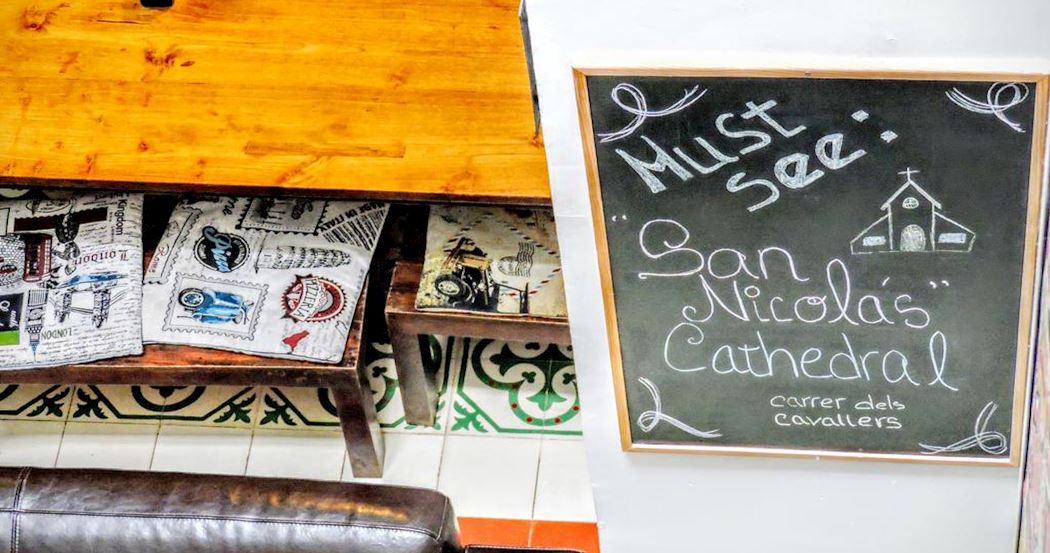 Must
See:
"San
Nicolás"
Cathedral
carrer dels
cavallers
Kingdom
London
LONDON
MADE IN ITALY
PIZZERIA